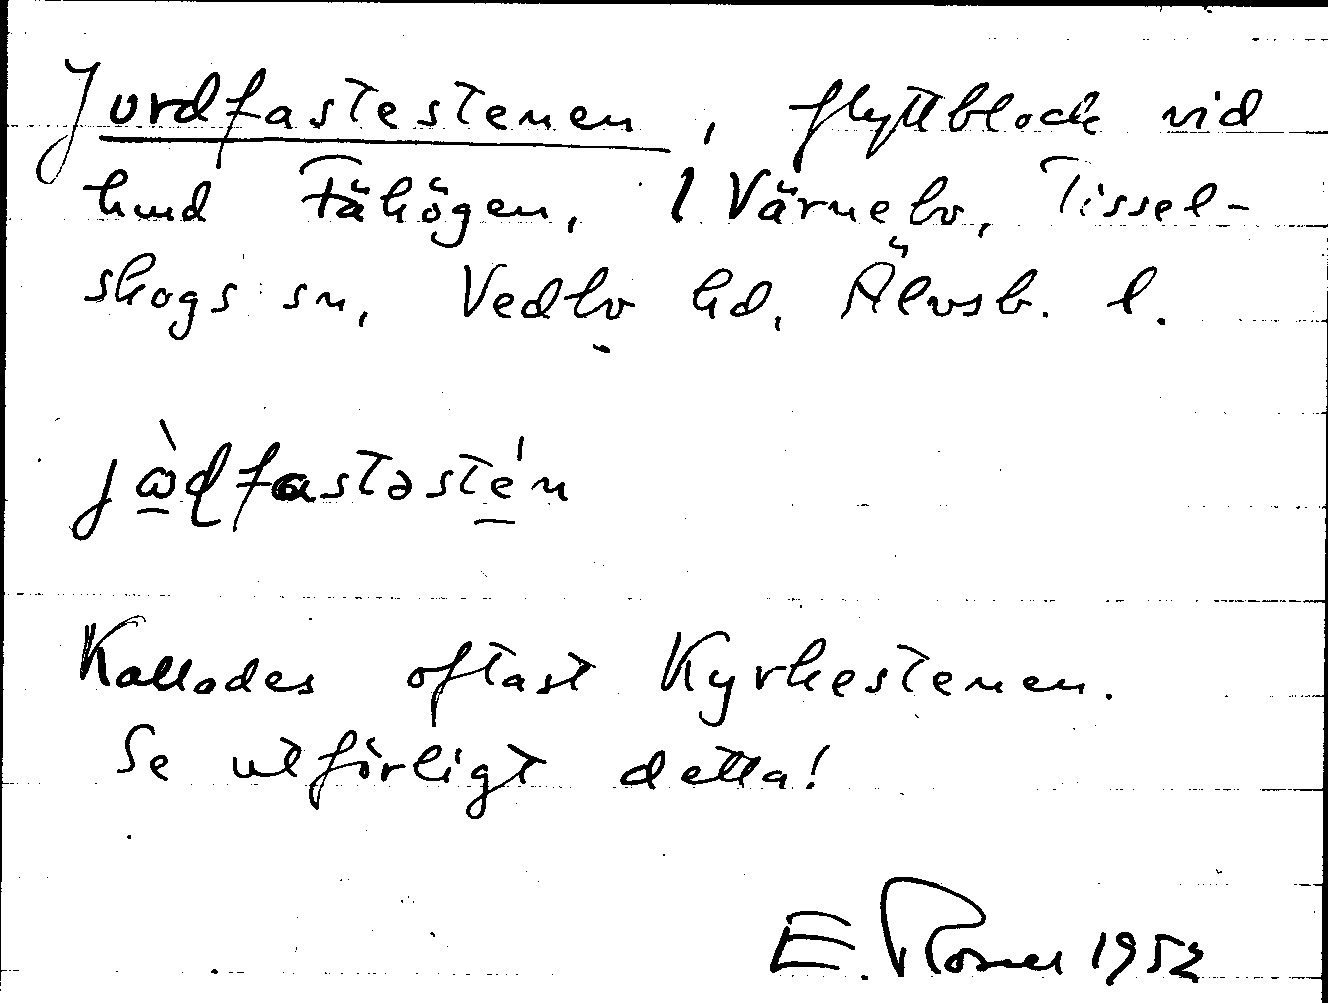 Jordfastestenen, flyttblock vid
lund Fähögen, l Värnebo, Tissel-
skogs sn, Vedbo hd, Älvsb. l.
jὼɖfastəste̱´n
Kallades oftast Kyrkestenen.
Se utförligt detta!
E. Rosner 1952